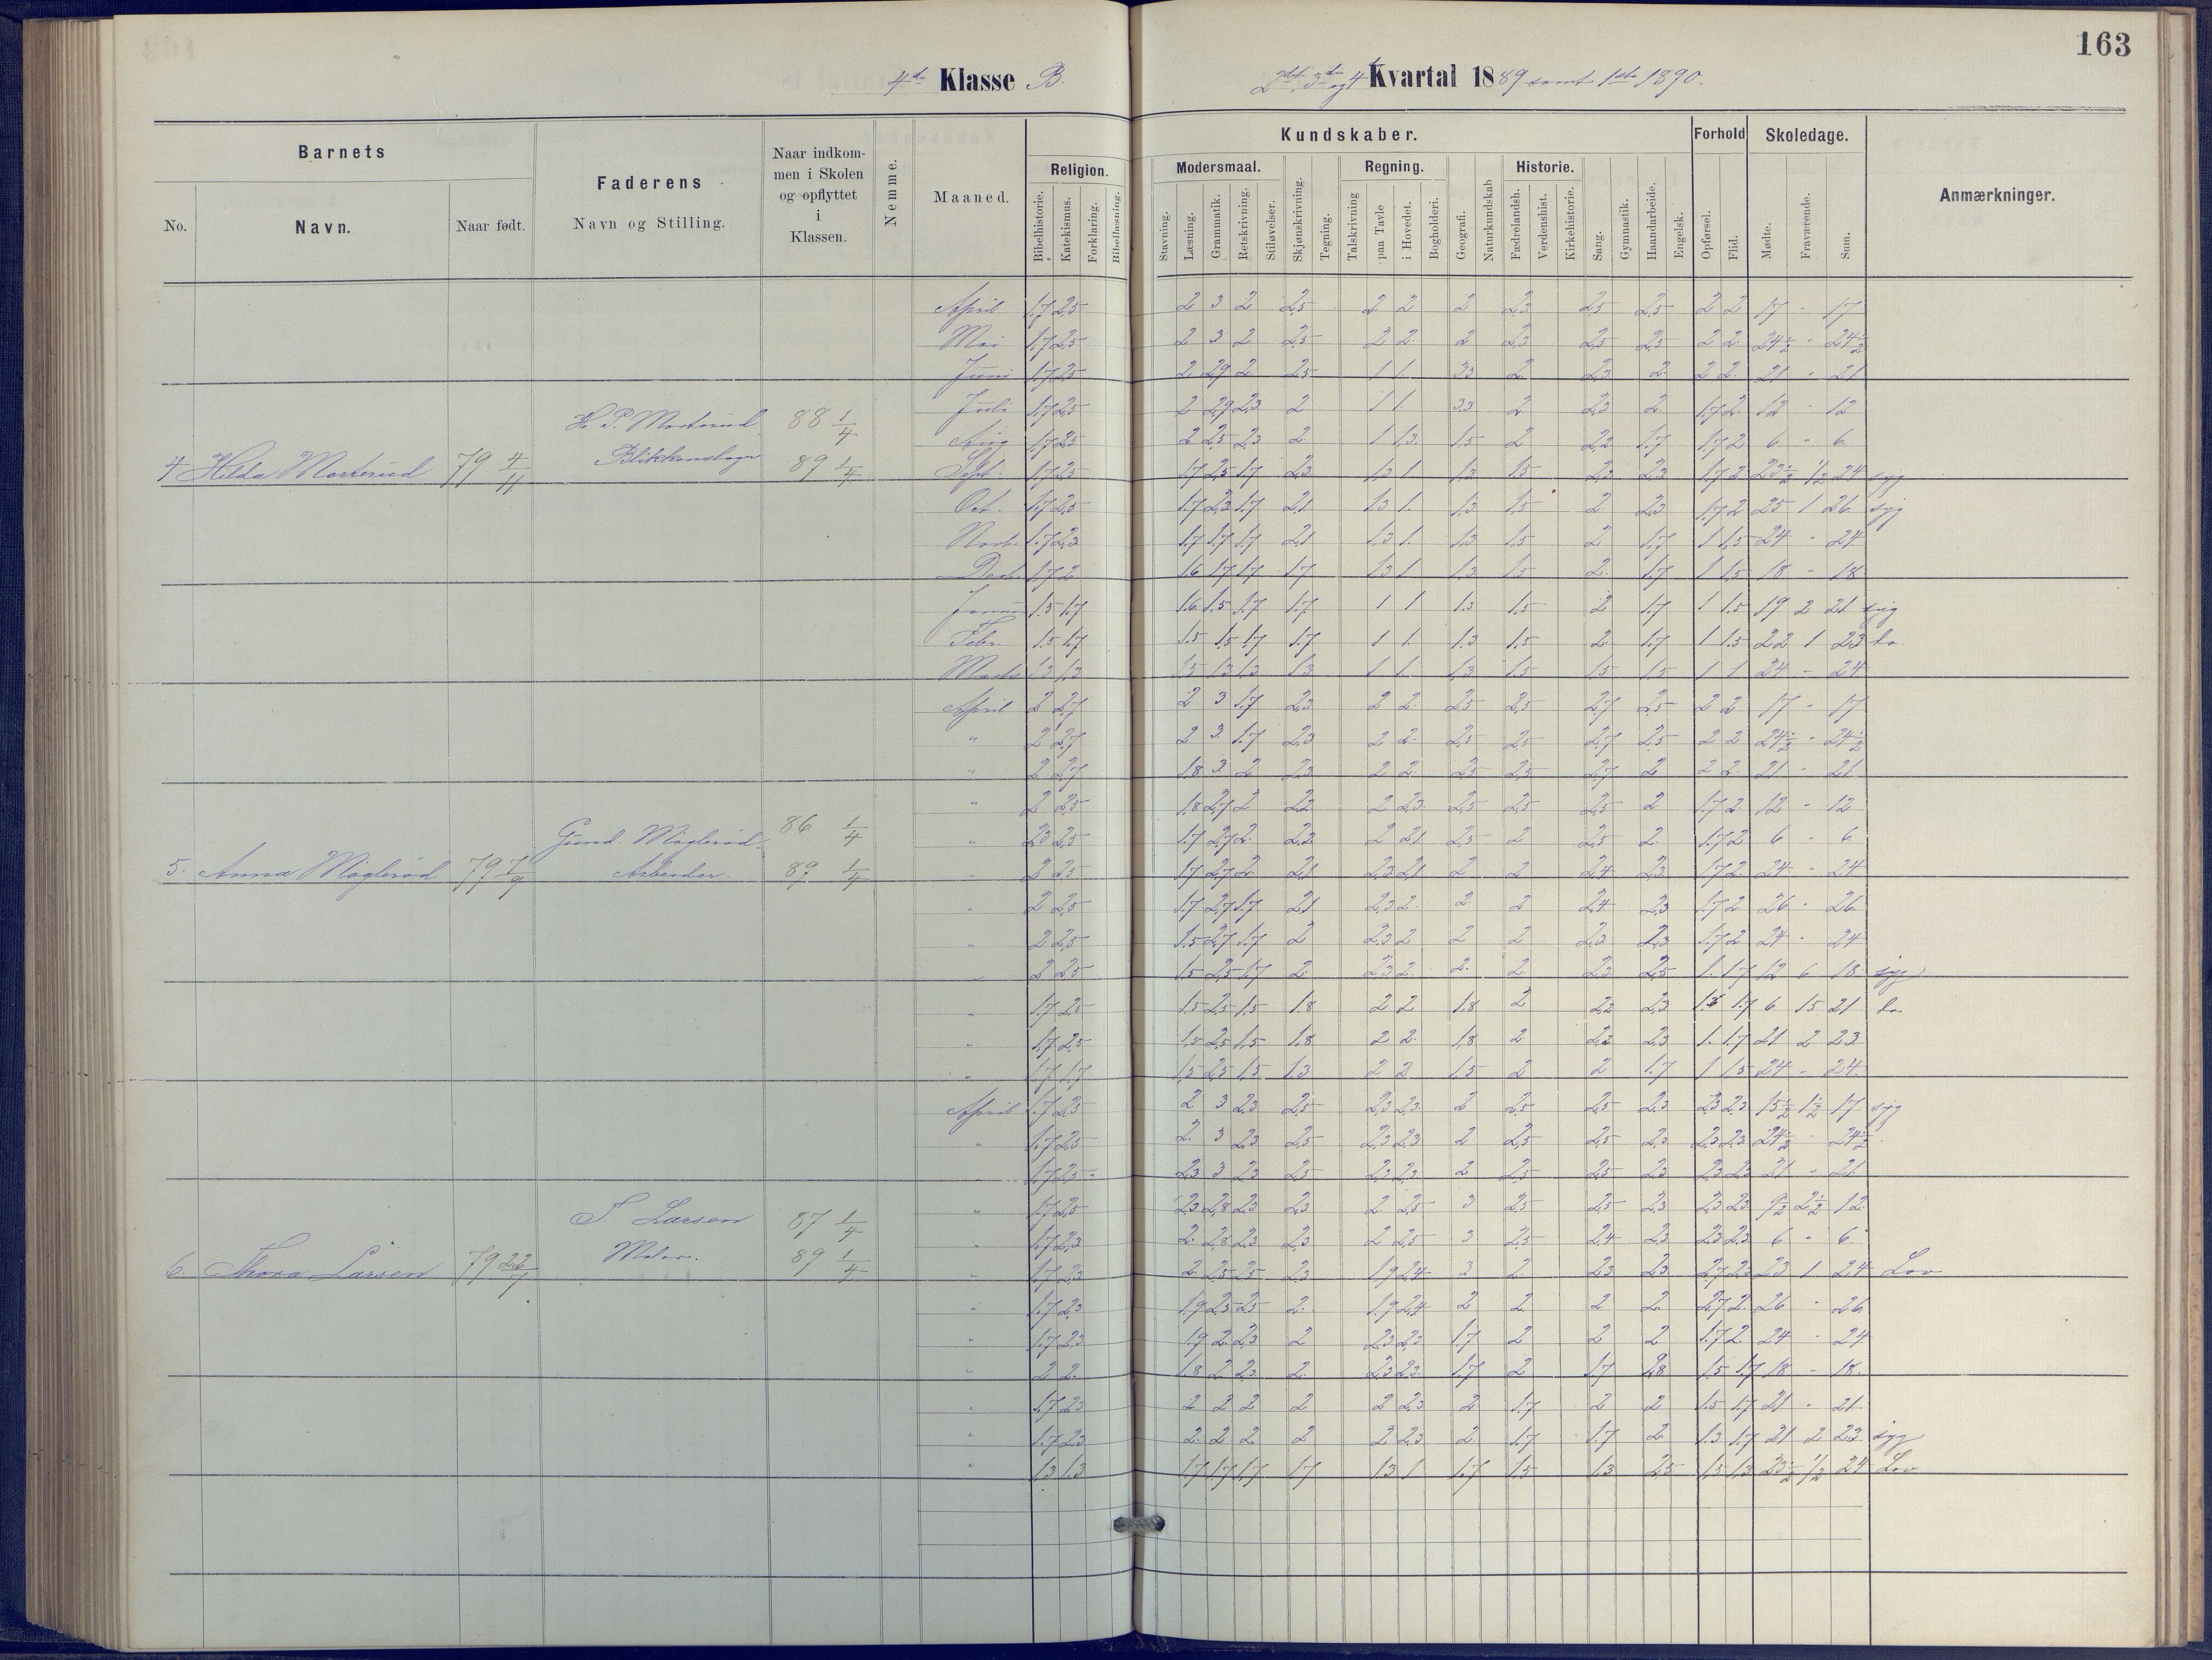 163
4de Klasse B.
2det, 3die og 4de Kvartal 1889 samt 1ste 1890.
Barnets
Faderens
Naar indkommen i Skolen og opflyttet i Klassen.
Nemme.
Maaned.
Kundskaber.
Forhold
Skoledage.
Anmærkninger.
No.
Navn.
Naar født.
Navn og Stilling.
Religion.
Modersmaal.
Regning.
Historie.
Bibelhistorie. Katekismus. Forklaring. Bibellæsning. Stavning. Læsning. Grammatik. Retskrivning. Stiløvelser. Skjønskrivning. Tegning. Talskrivning paa Tavle i Hovedet. Bogholderi. Geografi. Naturkundskab Fædrelandsh. Verdenshist. Kirkehistorie. Sang. Gymnastik. Haandarbeide. Engelsk. Opførsel. Flid. Mødte. Fraværende. Sum.
April 1.7 2.5 2 3 2 2.5 2 2 2 2.3 2.5 2.5 2 2 17 - 17
Mai 1.7 2.5 2 3 2 2.5 2 2 2 2.3 2.5 2.5 2 2 24½ - 24½
Juni 1.7 2.5 2 2.9 2 2.5 1 1 3.3 2 2.3 2 2 2 21 - 21
Juli 1.7 2.5 2 2.9 2.3 2 1 1 3.3 2 2.3 2 1.7 2 12 - 12
H. P. Morterud 88 1/4
Aug 1.7 2.5 2 2.5 2.3 2 1 1.3 1.5 2 2.2 1.7 1.7 2 6 - 6
4 Hilda Morterud 79 4/11 89 1/4 Sept. 1.7 2.5 1.7 2.5 1.7 2.3 1.3 1 1.3 1.5 2.2 2.3 1.7 2 23½ ½ 24 syg
Oct. 1.7 2.5 1.7 2.3 1.7 2.1 1.3 1 1.3 1.5 2 2.3 1.7 2 25 1 26 syg
1.7 2.3 1.7 1.7 1.7 2.1 1.3 1 1.3 1.5 2 1.7 1 1.5 24 - 24
1.7 2 1.6 1.7 1.7 1.7 1.3 1 1.3 1.5 2 1.7 1 1.5 18 - 18
1.5 1.7 1.6 1.5 1.7 1.7 1 1 1.3 1.5 2 1.7 1 1.5 19 2 21 syg
Febr. 1.5 1.7 1.5 1.5 1.7 1.7 1 1 1.3 1.5 2 1.7 1 1.5 22 1 23 do.
1.3 1.3 1.5 1.3 1.3 1.3 1 1 1.3 1.5 1.5 1.5 1 1 24 - 24
April 2 2.7 2 3 1.7 2.3 2 2 2.5 2.5 2.7 2.5 2 2 17 - 17
" 2 2.7 2 3 1.7 2.3 2 2 2.5 2.5 2.7 2.5 2 2 24½ - 24½
" 2 2.7 1.8 3 2 2.3 2 2 2.5 2.5 2.7 2 2 2 21 - 21
" 2 2.5 1.8 2.7 2 2.2 2 2.3 2.5 2.5 2.5 2 1.7 2 12 - 12
Gund. Møglerød 86 1/4 " 2.3 2.5 1.7 2.7 2 2.2 2 2.1 2.5 2 2.5 2 1.7 2 6 - 6
5. Anna Møglerød 79 7/9 Arbeider. 89 1/4 " 2 2.5 1.7 2.7 2 2.1 2.3 2.1 2 2 2.4 2.3 1.7 2 24 - 24
" 2 2.5 1.7 2.7 1.7 2.1 2.3 2 2 2 2.4 2.3 1.7 2 26 - 26
" 2 2.5 1.5 2.7 1.7 2 2.3 2 2 2 2.3 2.3 1.7 2 24 - 24
" 2 2.5 1.5 2.5 1.7 2 2.3 2 2 2 2.3 2.5 1 1.7 12 6 18 syg
" 1.7 2.5 1.5 2.5 1.5 1.8 2 2 1.8 2 2.2 2.3 1.7 6 15 21 do
" 1.7 2.5 1.5 2.5 1.5 1.8 2 2 1.8 2 2.2 2.3 1 1.7 21 2 23
" 1.7 1.7 1.5 2.5 1.5 1.3 2 2 1.5 2 2 1.7 1 1.5 24 - 24
April 1.7 2.5 2 3 2.3 2.5 2.3 2.3 2 2.5 2.5 2.3 2.3 2.3 15½ 1½ 17 syg
" 1.7 2.5 2 3 2.3 2.5 2.3 2.3 2 2.5 2.5 2.3 2.3 2.3 24½ - 24½
" 1.7 2.5 2.3 3 2.3 2.5 2.3 2.3 2 2.5 2.5 2.3 2.3 2.3 21 - 21
S. Larsen 87 1/4 " 1.7 2.5 2.3 2.8 2.3 2.3 2 2.5 3 2.5 2.5 2.3 2.3 2.3 9½ 2½ 12
" 1.7 2.3 2 2.8 2.3 2.3 2 2.5 3 2.5 2.4 2.3 2.3 2.3 6 - 6
6. Thora Larsen 79 22/7 Maler. 89 1/4 " 1.7 2.3 2 2.5 2.5 2.3 1.9 2.4 3 2 2.3 2.3 2.7 2.3 23 1 24 Lov
" 1.7 2.3 1.9 2.5 2.5 2 1.9 2.4 2 2 2 2 2.7 2 26 - 26
" 1.7 2.3 1.9 2 2.3 2 2.3 2.3 1.7 2 2 2 1.7 2 24 - 24
" 2 2 1.8 2 2.3 2 2.3 2.3 1.7 2 1.7 2.8 1.5 1.7 18 - 18
" 1.7 2.3 2 2 2 2 2 2.3 2 1.7 2 2 1.5 1.7 21 - 21
" 1.7 2.3 2 2 2 2 2 2.3 2 1.7 1.7 2 1.3 1.7 21 2 23 syg
" 1.3 1.3 1.7 1.7 1.7 1.7 1.3 1 1.7 1.5 1.3 2.5 1.5 1.3 23½ ½ 24 Lov